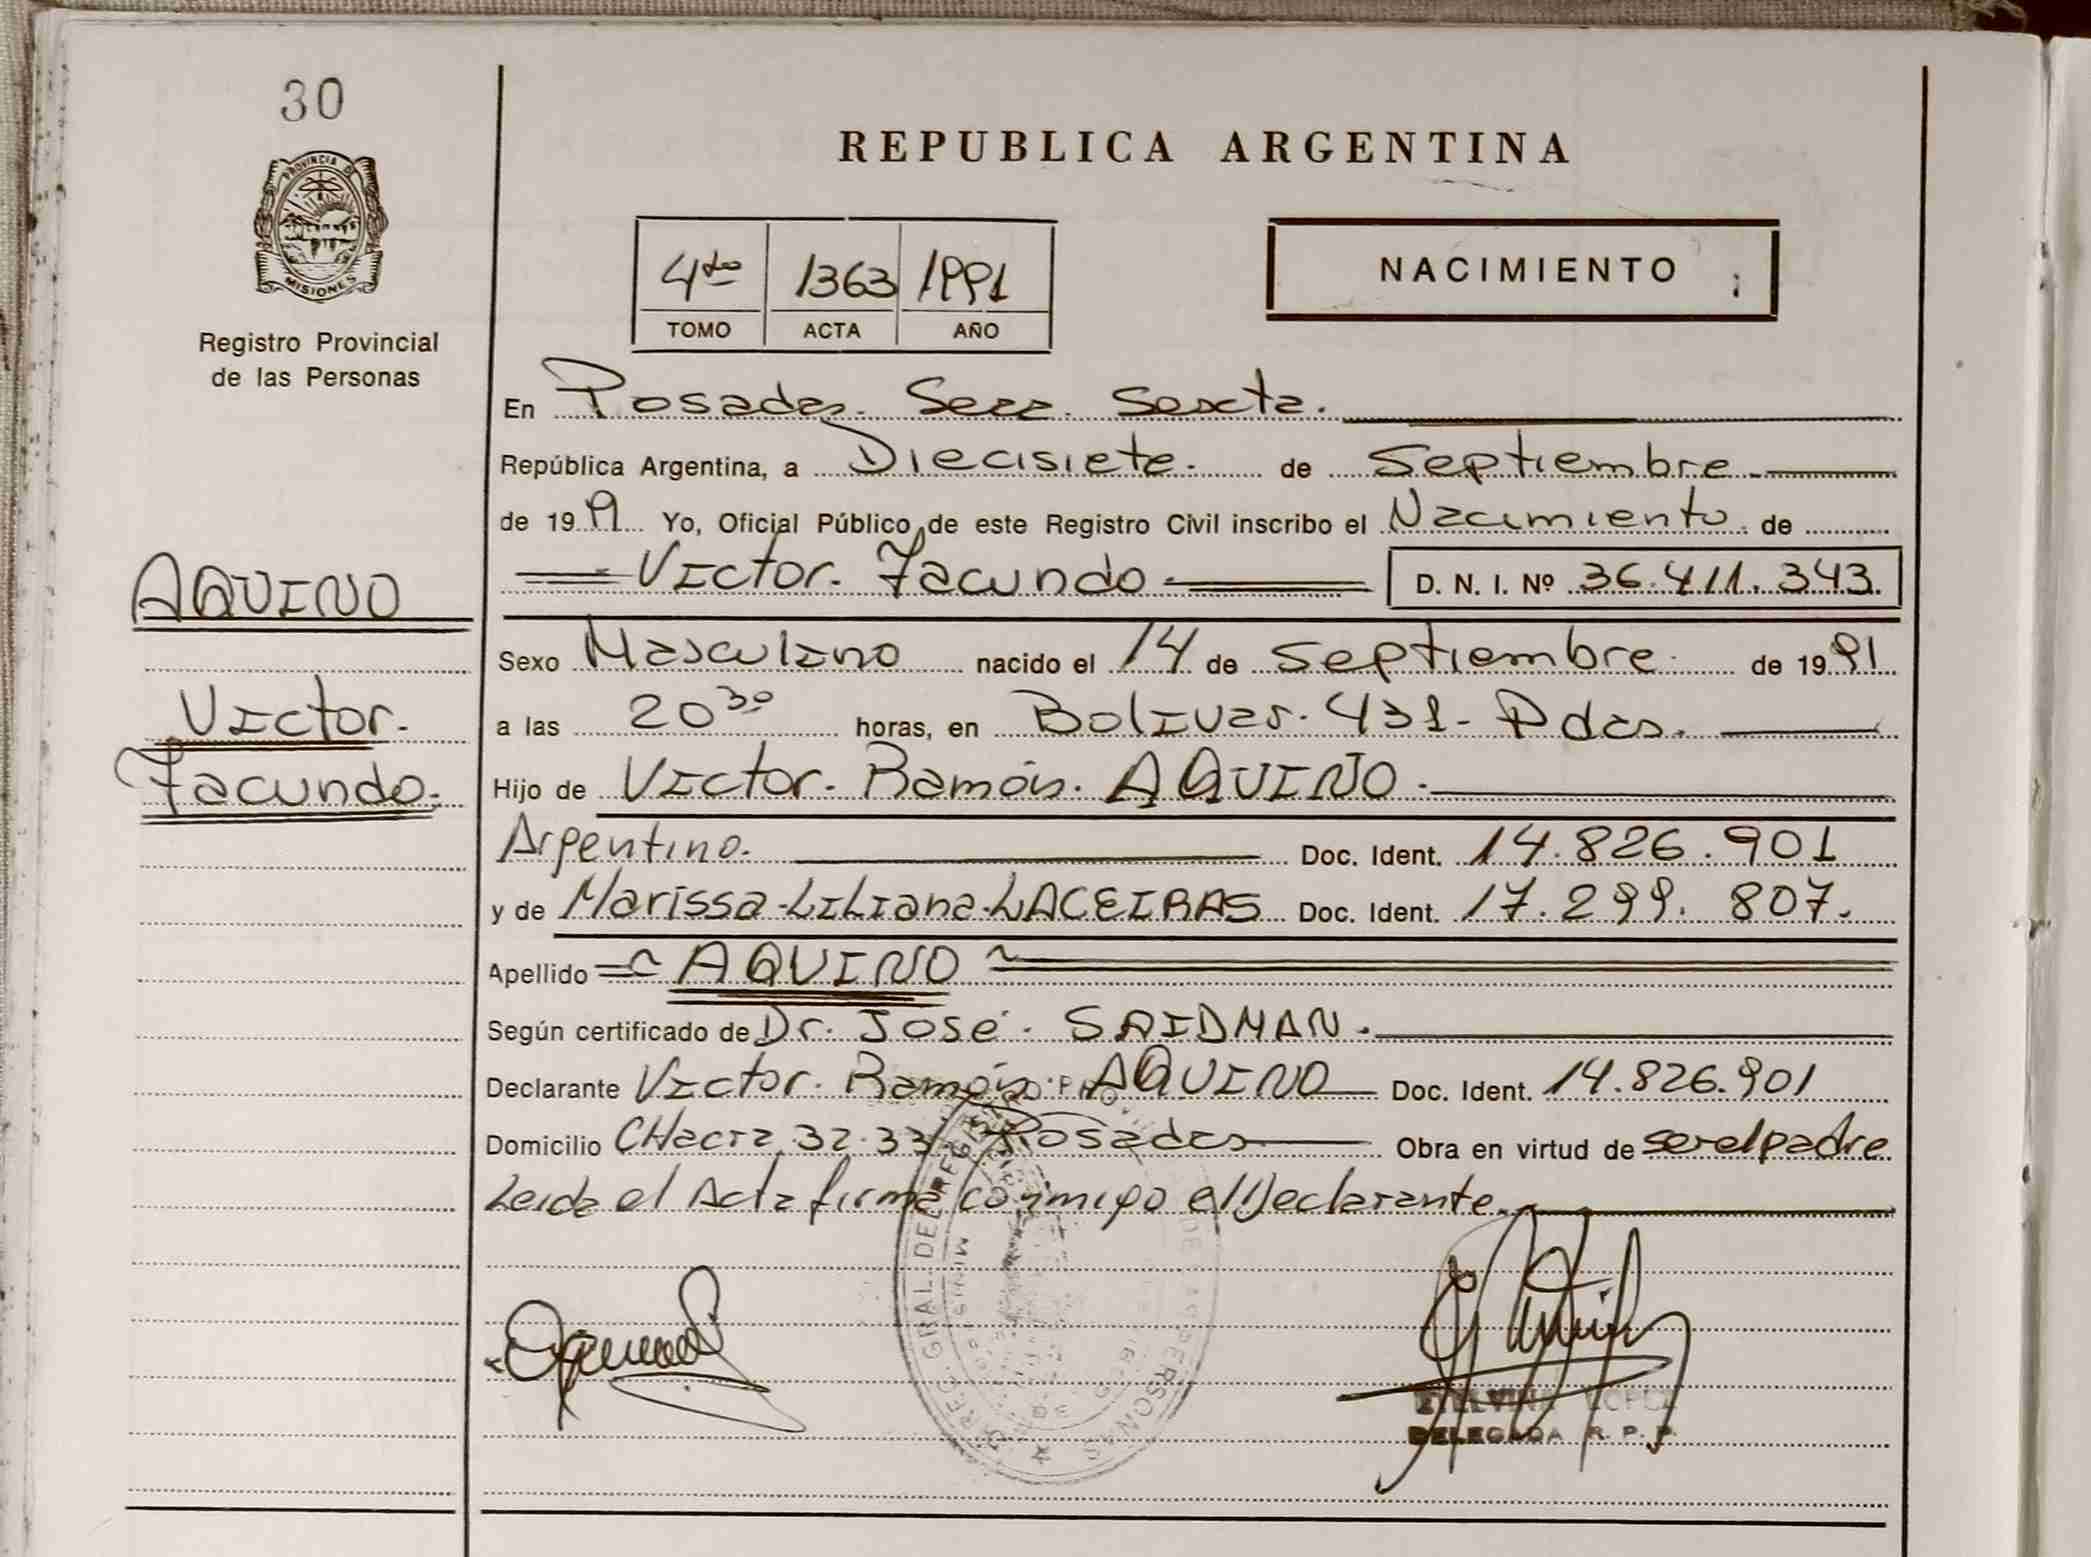 30
PROVINCIA DE
MISIONES
Registro Provincial
de las Personas
REPUBLICA ARGENTINA
4to 1363 1991
TOMO ACTA AÑO
NACIMIENTO
En Posadas. Secc. Sexta.
República Argentina, a Diecisiete. de Septiembre
de 19 91 Yo, Oficial Público de este Registro Civil inscribo el Nacimiento de
Victor. Facundo D. N. I. Nº 36.411.343.
AQUINO
Victor.
Facundo.
Sexo Masculino nacido el 14 de Septiembre de 1991
a las 20 30 horas, en Bolivar. 431- Pdas.
Hijo de Victor. Ramón. AQUINO.
Argentino. Doc. Ident. 14.826.901
y de Marissa-Liliana-LACEIRAS Doc. Ident. 17.299.807.
Apellido AQUINO
Según certificado de Dr. José. SAIDMAN.
Declarante Victor. Ramón AQUINO Doc. Ident. 14.826.901
Domicilio CHacra 32-33 Posadas Obra en virtud de ser el padre
Leida el Acta firma conmigo el Declarante.
REG. GRAL. DEL REGIS DE LAS PERSONAS
LOPEZ
DELEGADA R. P. P.